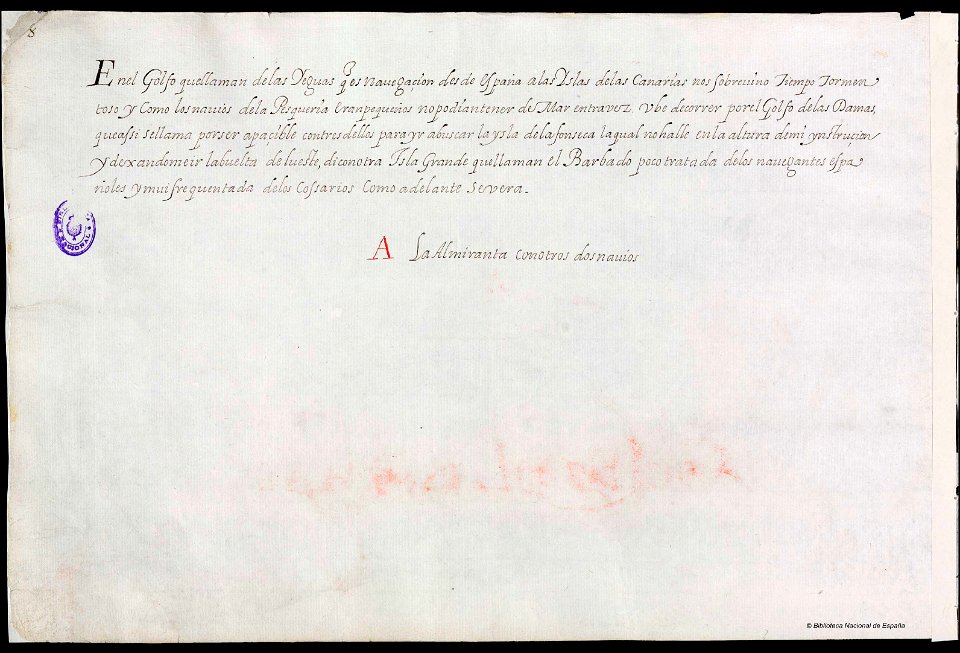 8
Enel Golfo quellaman delas Yeguas q̃ es navegaçion desde españa alas Yslas delas Canarias nos sobrevino Tiempo Tormen
toso y Como los navios dela Pesqueria eran pequeños no podian tener de Mar entravez. Vbe decorrer porel Golfo delas Damas,
que assi sellama por ser apaçible contres dellos para yr abuscar la ysla dela fonseca laqual no halle en la altura demi ynstruçion
Y dexandome ir labuelta delueste, di conotra Isla Grande quellaman el Barbado poco tratada delos navegantes espa
ñoles y mui frequentada delos Cossarios Como adelante se vera.
A La Almiranta conotros dos navios
© Biblioteca Nacional de España